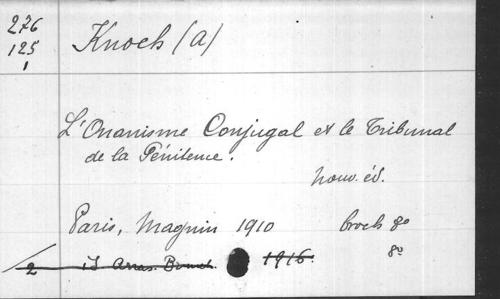 276
125
1
Knoch (a)
L'Onanisme Conjugal et le Tribunal
de la Pénitence.
nouv. éd.
Paris, Magnin 1910 broch 8o
2 id 1916. 8o